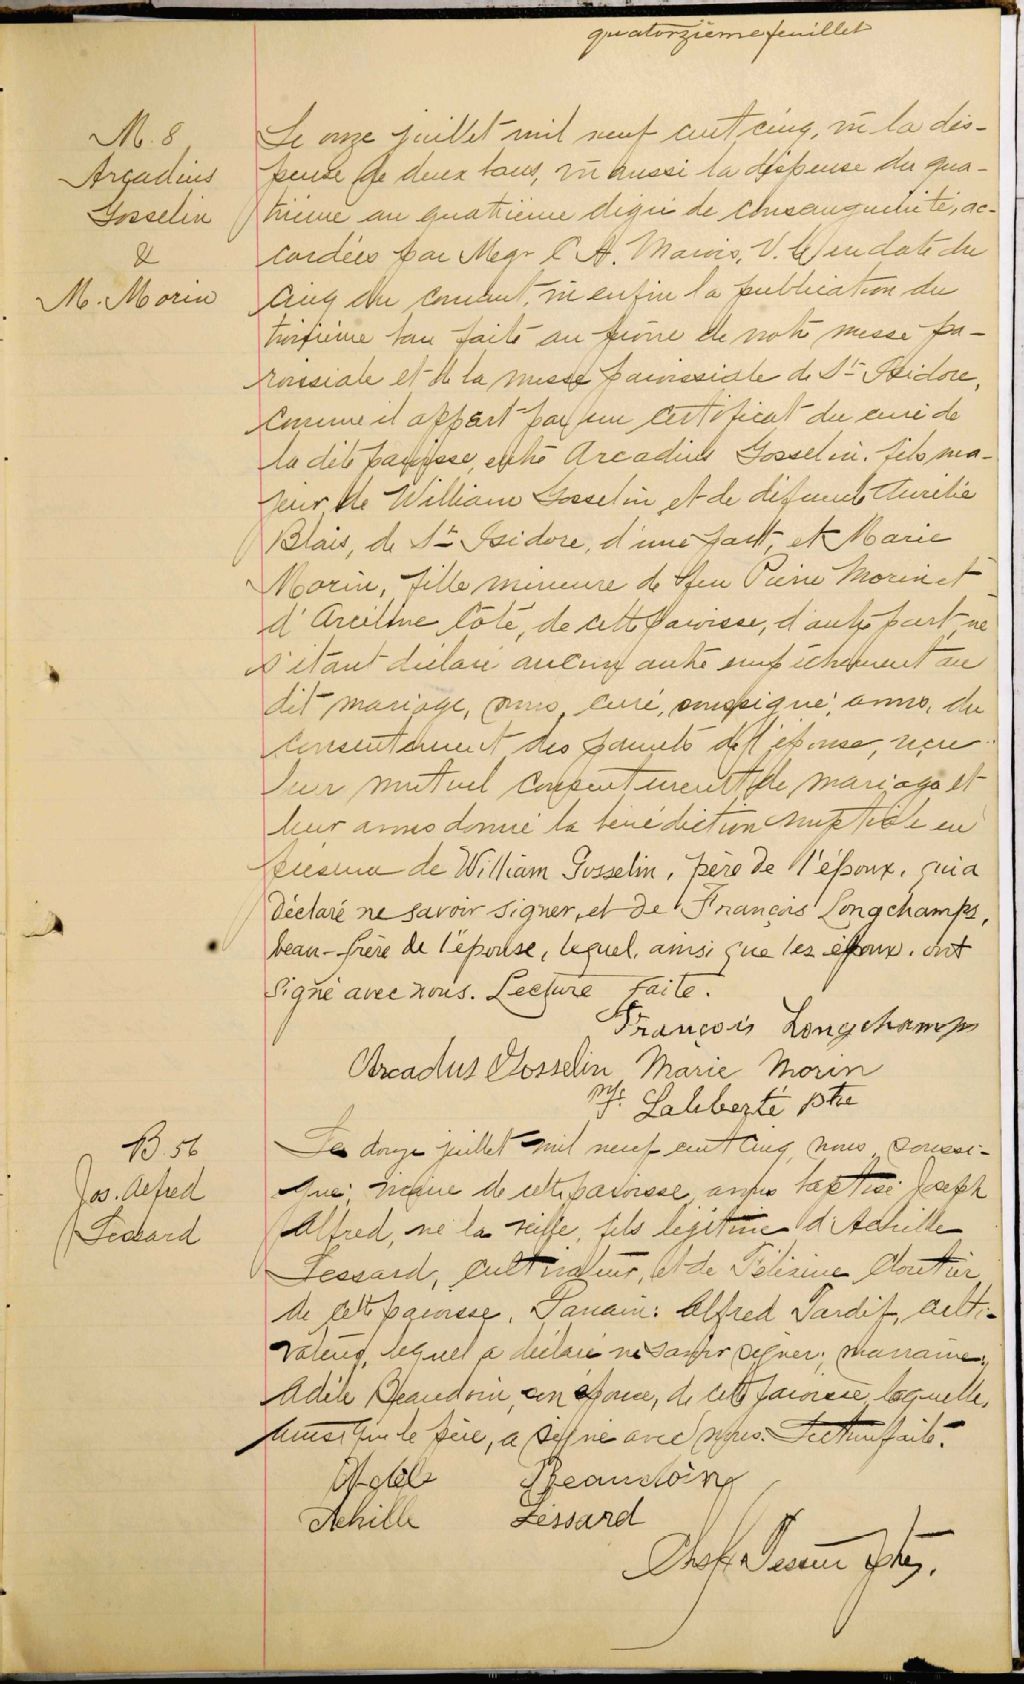 quatorzième feuillet
M. 8
Arcadius
Gosselin
&
M. Morin
Le onze juillet mil neuf cent cinq, vû la dis-
pense de deux bans, vû aussi la dispense du qua-
trième au quatrième degré de consanguinité, ac-
cordées par Mgr C. A. Marois, V. G. en date du
cinq du courant, vû enfin la publication du
troisième ban faite au prône de notre messe pa-
roissiale et de la messe paroissiale de St Isidore,
comme il appert par un certificat du curé de
la dite paroisse, entre Arcadius Gosselin, fils ma-
jeur de William Gosselin et de défunte Aurélie
Blais, de St Isidore, d'une part, et Marie
Morin, fille mineure de feu Pierre Morin et
d'Arcéline Côté, de cette paroisse, d'autre part, ne
s'étant déclaré aucun autre empêchement au
dit mariage, nous, curé, soussigné, avons, du
consentement des parents de l'épouse, reçu
leur mutuel consentement de mariage et
leur avons donné la bénédiction nuptiale en
présence de William Gosselin, père de l'époux, qui a
déclaré ne savoir signer, et de François Longchamps,
beau-frère de l'épouse, lequel, ainsi que les époux, ont
signé avec nous. Lecture faite.
François Longchamps
Arcadus Gosselin Marie Morin
Laliberté ptre
B. 56
Jos. Alfred
Lessard
Le douze juillet mil neuf cent cinq, nous, soussi-
gné, vicaire de cette paroisse, avons baptisé Joseph
Alfred, né la veille, fils légitime d'Achille
Lessard, cultivateur, et de Félixine Cloutier,
de cette paroisse. Parrain: Alfred Tardif, culti-
vateur, lequel a déclaré ne savoir signer; marraine:
Adèle Beaudoin, son épouse, de cette paroisse, laquelle,
ainsi que le père, a signé avec nous. Lecture faite.
Adèle Beaudoin
Achille Lessard
ptre.